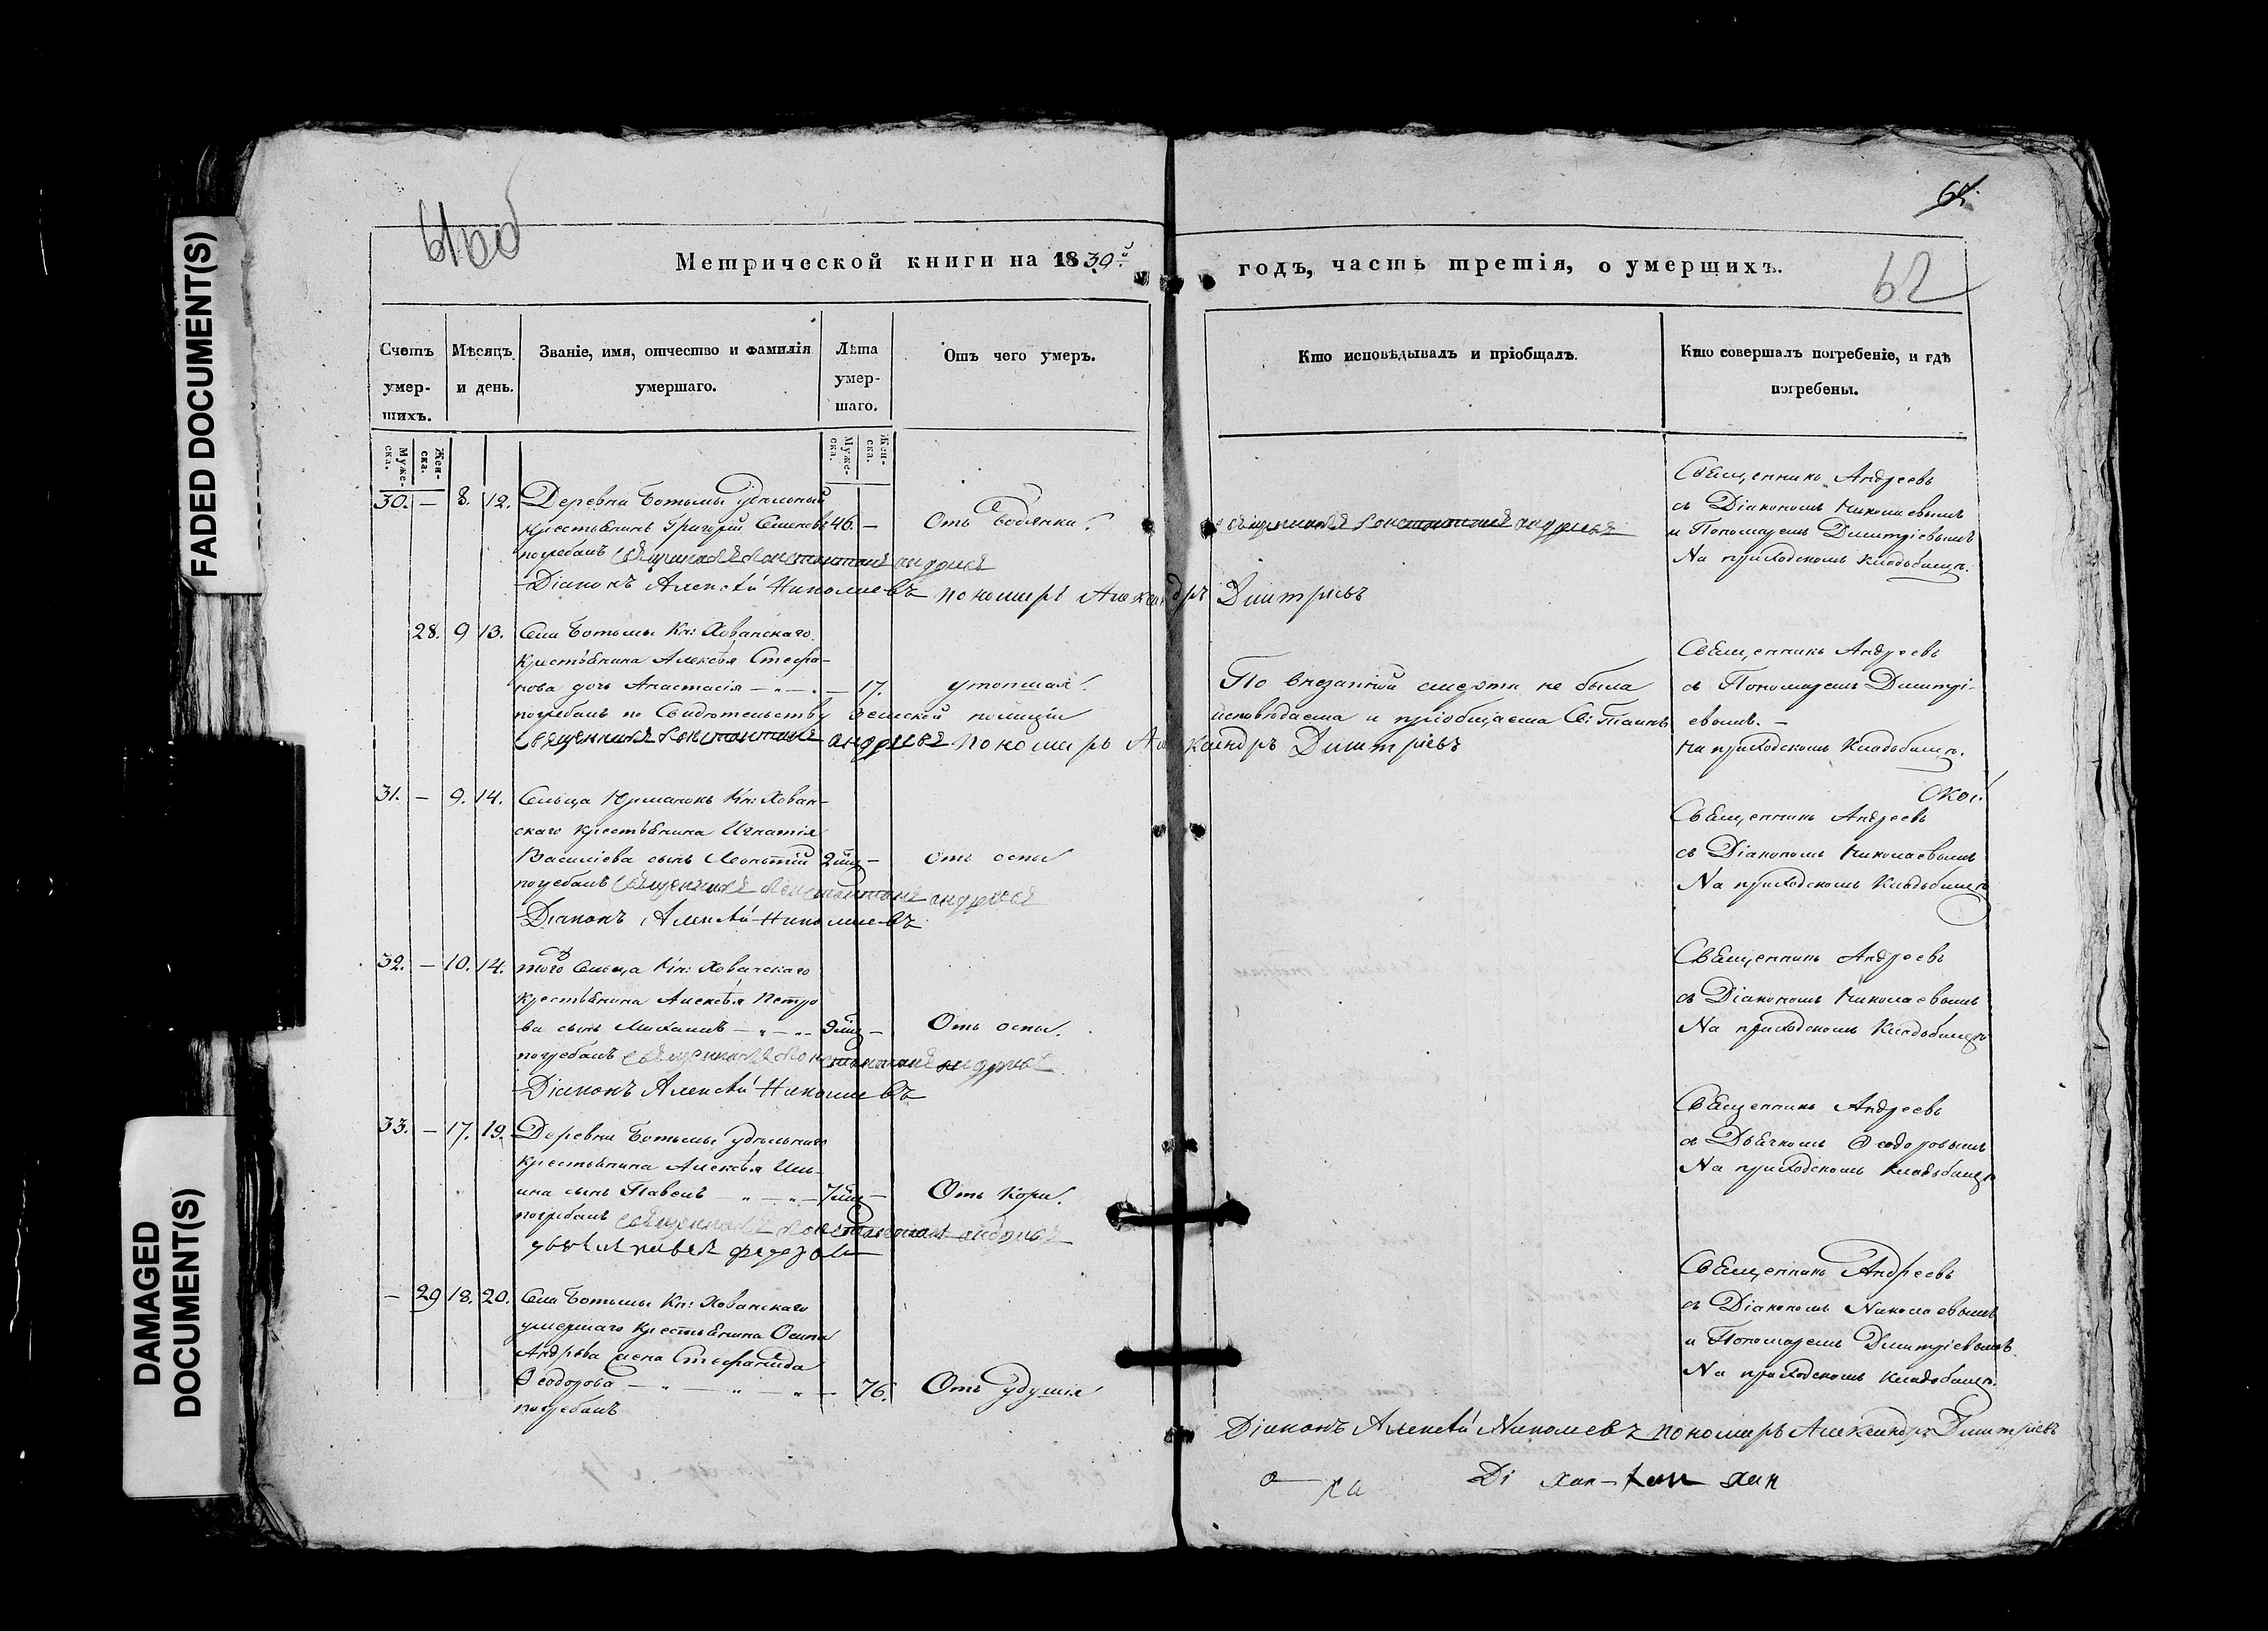 FADED DOCUMENT(S)
DAMAGED
DOCUMENT(S)
61об
Метрической книги на 1839й
Счетъ
умер-
шихъ.
Муже-
ска.
Жен-
ска.
Мѣсяцъ
и день.
Званіе, имя, отчество и фамилія
умершаго.
Лѣта
умер-
шаго.
Муже-
ска.
Жен-
ска.
Отъ чего умеръ.
30. — 8. 12. Деревни Ботьмы удѣльный
крестьянинъ Григорій Семеновъ 46. — Отъ водянки.
погребалъ священникъ Константинъ андреевъ
Діаконъ Алексѣй Николаевъ пономарь Александръ Дмитріевъ
28. 9 13. Села Ботьмы Кн: Хованскаго
крестьянина Алексѣя Стефа-
нова дочь Анастасія — 17. утопшая.
погребалъ по Свидѣтельству земской полиціи
священникъ Константинъ андреевъ пономарь Александръ Дмитріевъ
31. — 9. 14. Сельца Юрманокъ Кн: Хован-
скаго крестьянина Игнатія
Васильева сынъ Леонтій 2 — Отъ оспы
погребалъ священникъ Константинъ андреевъ
Діаконъ Алексѣй Николаевъ
32. — 10. 14. того Сельца Кн: Хованскаго
крестьянина Алексѣя Петро
ва сынъ Михаилъ — 9 — Отъ оспы.
погребалъ священникъ Константинъ андреевъ
Діаконъ Алексѣй Николаевъ
33. — 17. 19. Деревни Ботьмы удѣльнаго
крестьянина Алексѣя Иль-
ина сынъ Павелъ — 7 — Отъ кори.
погребалъ священникъ Константинъ андреевъ
— 29 18. 20. Села Ботьмы Кн: Хованскаго
умершаго крестьянина Осипа
Андреева жена Стефанида
Ѳеодорова — 76. Отъ удушія
погребалъ
62
годъ, часть третія, о умершихъ.
Кто исповѣдывалъ и пріобщалъ.
Кто совершалъ погребеніе, и гдѣ
погребены.
священникъ Константинъ андреевъ
Священникъ Андреевъ
съ Діакономъ Николаевымъ
и Пономаремъ Димитріевымъ
На приходскомъ кладбищѣ.
По внезапной смерти не была
исповѣдаема и пріобщаема Св: Таинъ
Священникъ Андреевъ
съ Пономаремъ Димитрі-
евымъ. —
На приходскомъ Кладбищѣ.
Священникъ Андреевъ
съ Діакономъ Николаевымъ
На приходскомъ Кладбищѣ
Священникъ Андреевъ
съ Діакономъ Николаевымъ
На приходскомъ Кладбищѣ
Священникъ Андреевъ
съ Дьячкомъ Ѳеодоровымъ
На приходскомъ кладбищѣ
Священникъ Андреевъ
съ Діакономъ Николаевымъ
и Пономаремъ Димитріевымъ
На приходскомъ кладбищѣ.
Діаконъ Алексѣй Николаевъ пономарь Александръ Дмитріевъ